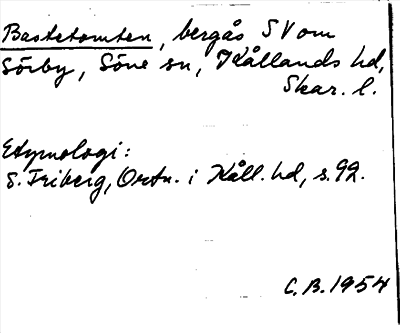 Bastetomten, bergås SV om
Sörby, Söne sn, Kållands hd,
Skar. l.
Etymologi:
S. Friberg, Ortn. i Kåll. hd, s. 92.
C.B. 1954